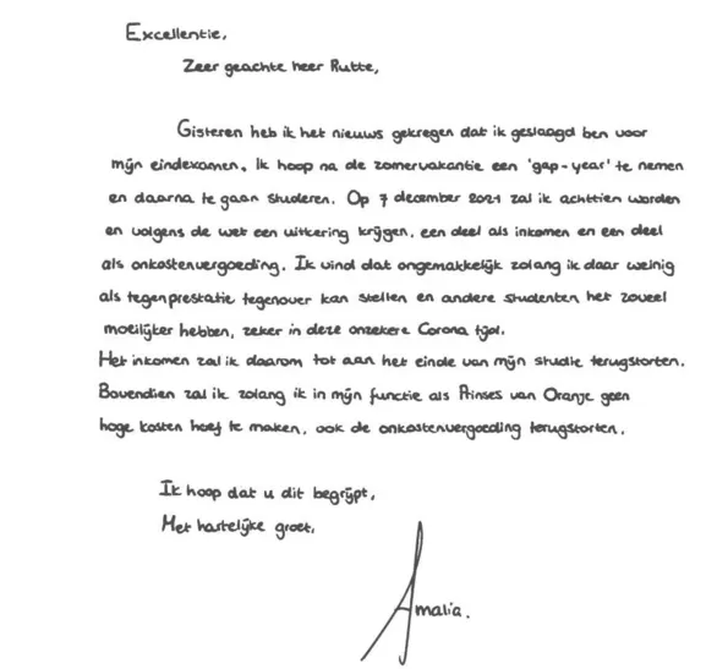 Excellentie,
Zeer geachte heer Rutte,
Gisteren heb ik het nieuws gekregen dat ik geslaagd ben voor
mijn eindexamen. Ik hoop na de zomervakantie een 'gap-year' te nemen
en daarna te gaan studeren. Op 7 december 2021 zal ik achttien worden
en volgens de wet een uitkering krijgen, een deel als inkomen en een deel
als onkostenvergoeding. Ik vind dat ongemakkelijk zolang ik daar weinig
als tegenprestatie tegenover kan stellen en andere studenten het zoveel
moeilijker hebben, zeker in deze onzekere Corona tijd.
Het inkomen zal ik daarom tot aan het einde van mijn studie terugstorten.
Bovendien zal ik zolang ik in mijn functie als Prinses van Oranje geen
hoge kosten hoef te maken, ook de onkostenvergoeding terugstorten.
Ik hoop dat u dit begrijpt,
Met hartelijke groet,
Amalia.